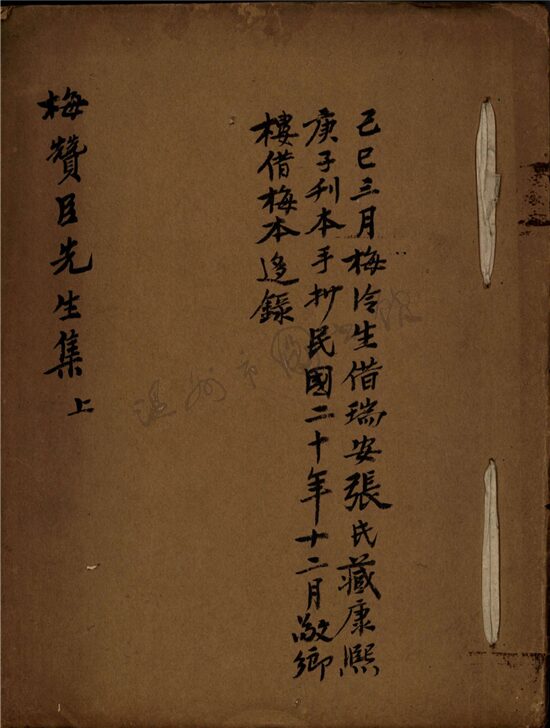 己巳三月梅冷生借瑞安張氏藏康熙
庚子刊本手抄民國二十年十二月敬鄉
樓借梅本迻錄
梅贊臣先生集 上
温州市圖